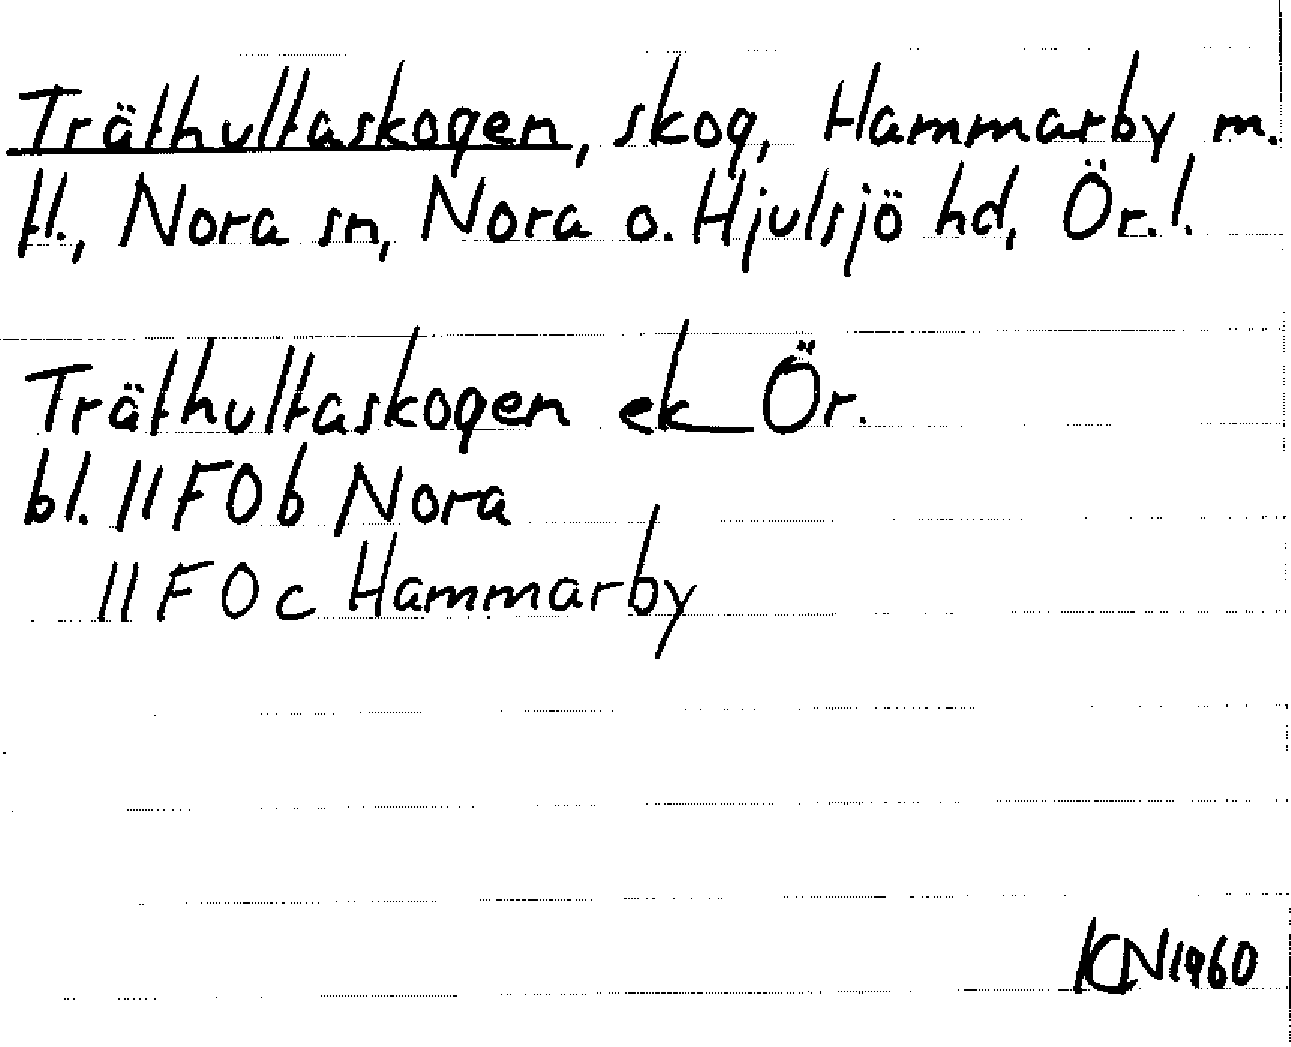 Träthultaskogen, skog, Hammarby m.
fl., Nora sn, Nora o. Hjulsjö hd, Ör. l.
Träthultaskogen ek Ör.
bl. 11F0b Nora
11F0c Hammarby
KN1960